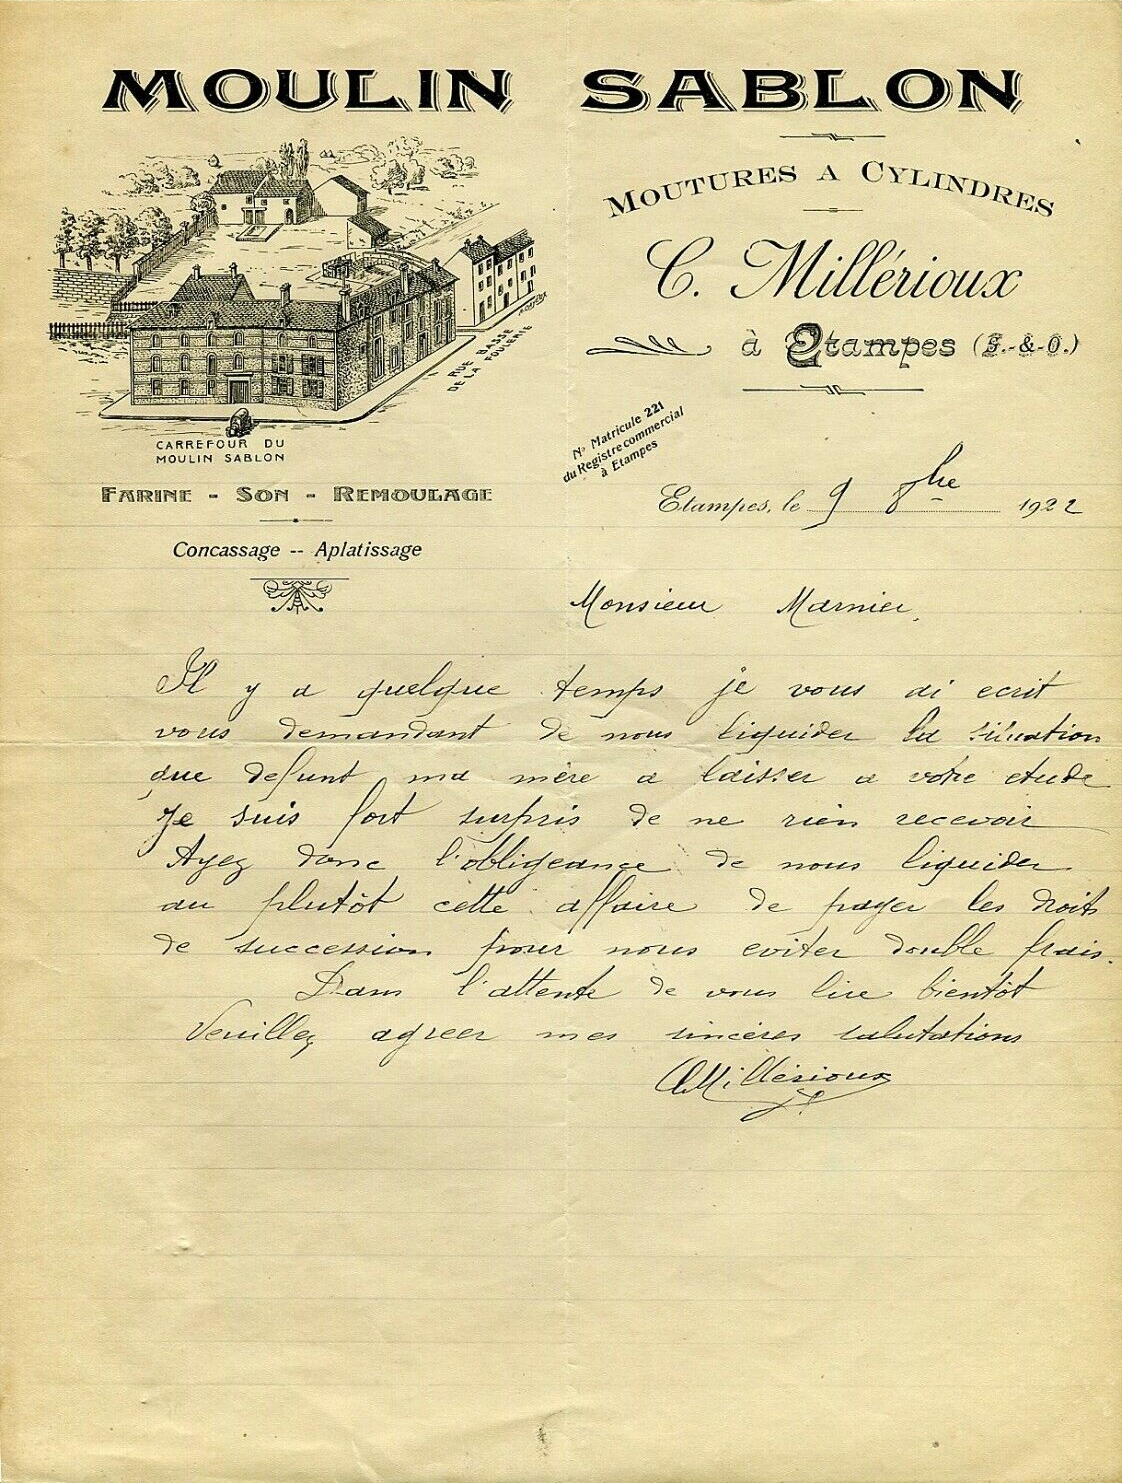 MOULIN SABLON
MOUTURES A CYLINDRES
C. Millérioux
à Etampes (S.-&-O.)
RUE BASSE
DE LA FOULERIE
CARREFOUR DU
MOULIN SABLON
No Matricule 221
du Registre commercial
à Etampes
FARINE - SON - REMOULAGE
Concassage -- Aplatissage
Etampes, le 9 8bre 1922
Monsieur Marnier,
Il y a quelque temps je vous ai ecrit
vous demandant de nous liquider la situation
que defunt ma mère a laisser a votre etude
Je suis fort surpris de ne rien recevoir
Ayez donc l'obligeance de nous liquider
au plutôt cette affaire de payer les droits
de succession pour nous eviter double frais.
Dans l'attente de vous lire bientôt
Veuillez agreer mes sincères salutations
CMillérioux